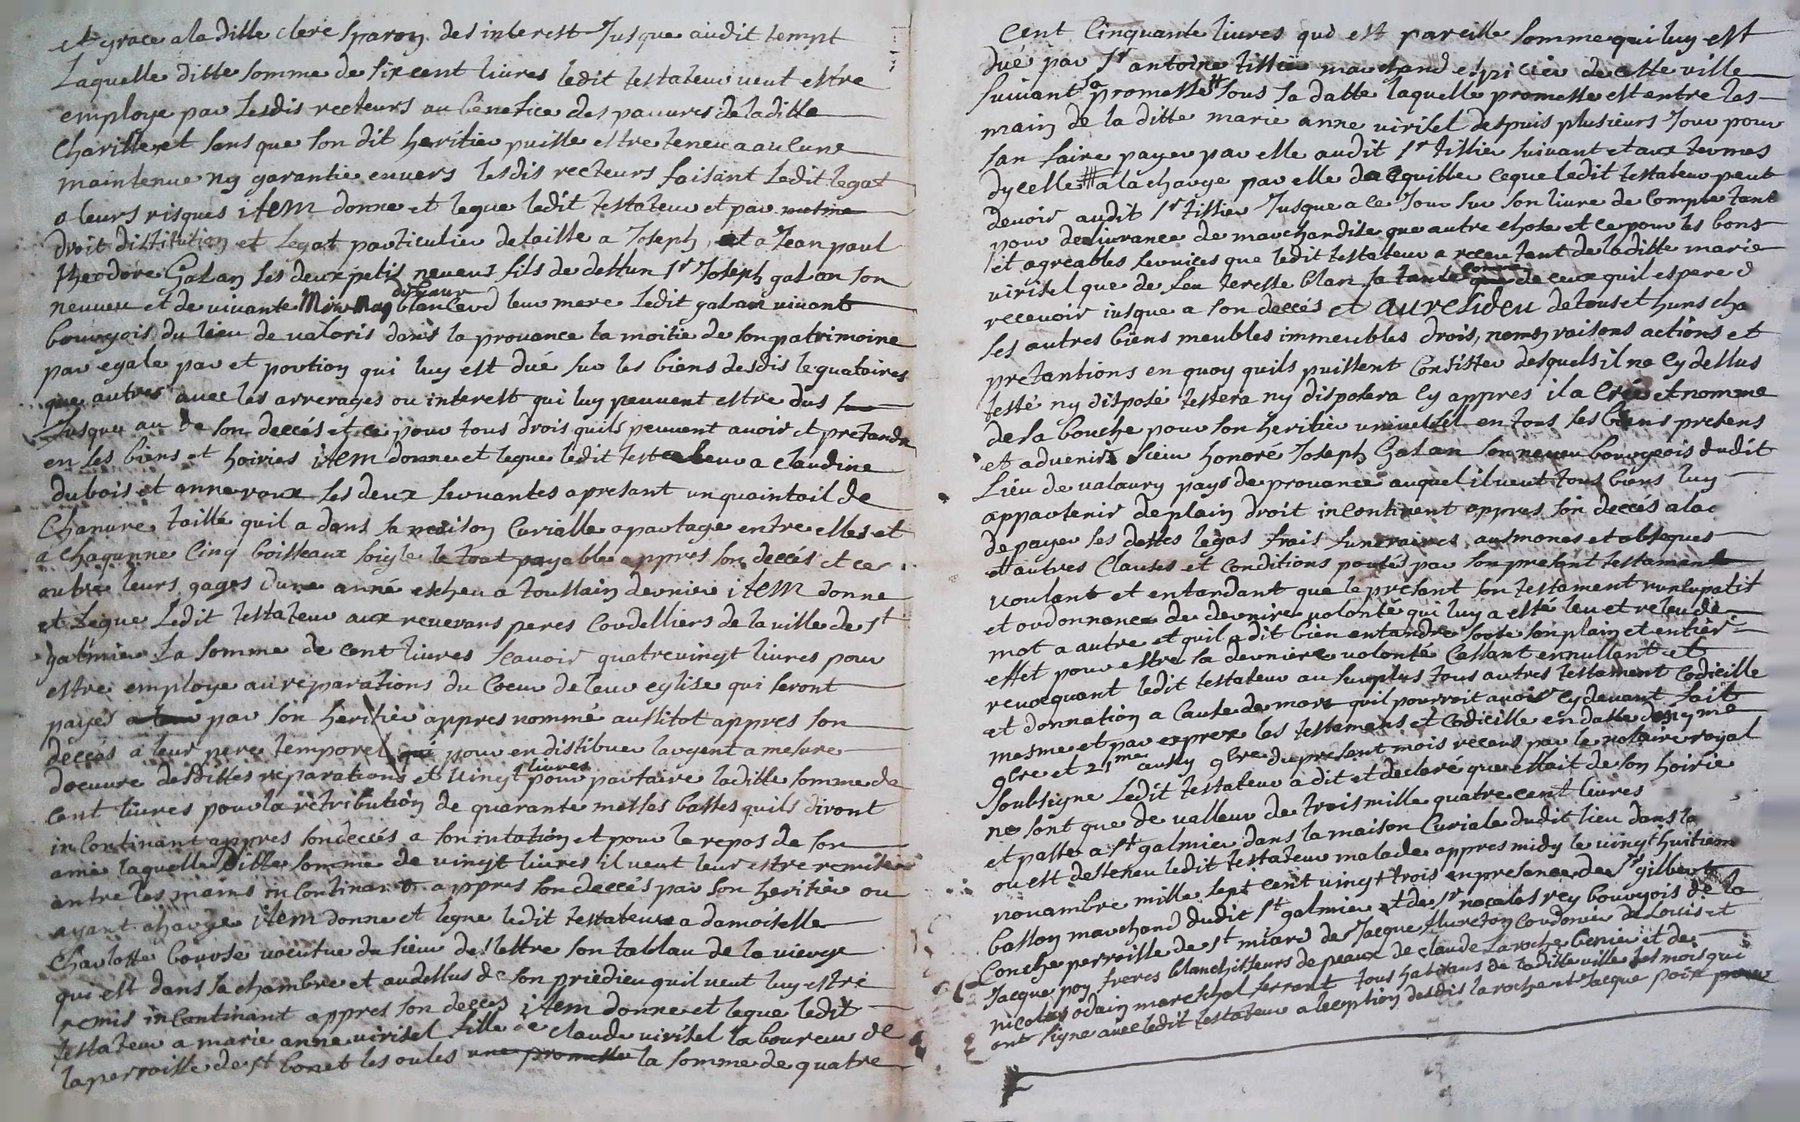 et grace a la ditte clere sparon des interest Jusque audit tempt
Laquelle ditte somme de six cent livres ledit testateur veut estre
employe par lesdis recteurs au benefice des pauvres de la ditte
Charitte et sans que son dit heritier puisse estre teneu a aulcune
maintenue ny garantie envers lesdis recteurs faisant ledit legat
a leurs risques item donne et legue ledit testateur et par mesme
droit distitution et legat particulier delaisse a Joseph et a Jean paul
theodore Galan ses deux petis neveux fils de deffun Sr Joseph galan son
neuveu et de vivante blancard leur mere ledit galan vivant
bourgois du lieu de valoris dans la provance la moitié de son patrimoine
par egale par et portion qui luy est dué sur les biens desdis leguatoires
que autres avec les arrerages ou interest qui luy peuvent estre dus
Jusque au de son deccés et ce pour tous drois quils peuvent avoir et pretandre
en ses biens et hoiries item donne et legue ledit testateur a claudine
dubois et anne roux ses deux servantes apresant un quaintail de
Chanvre taillé quil a dans sa maison Curialle a partage entre elles et
a chaqunne Cinq boisseaux soigle le tout payable appres son deccés et ce
outre leurs gages dune anné escheu a toussain dernier item donne
et legue Ledit testateur aux reverans peres Cordelliers de la ville de st
galmier La somme de cent livres scavoir quatrevingt livres pour
estre employe au reparations du Coeur de leur eglise qui seront
payés par son heritier appres nommé aussitot appres son
deccés a leur pere temporel qui pour en distribuer largent a mesure
doeuvre desdittes reparations et vingt livres pour parfaire laditte somme de
cent livres pour la retribution de quarante messes basses quils diront
incontinant appres son deccés a son intation et pour le repos de son
ame laquelle ditte somme de vingt livres il veut leur estre remise
entre les mains incontinant appres son deccés par son heritier ou
ayant charge item donne et legue ledit testateur a damoiselle
Charlotte bourse vocutue du sieur de lestre son tablau de la vierge
qui est dans sa chambre et audessus de son priedieu quil veut luy estre
remis incontinant appres son deccés item donne et legue ledit
testateur a marie anne virisel fille de claude virisel laboureur de
la perroisse de st bonet les oules une promesse la somme de quatre
Cent Cinquante livres qui est pareille somme qui luy est
dué par Sr antoine tissier marchand espicier de cette ville
suivant sa promesse sous sa datte laquelle promesse est entre les
main de la ditte marie anne virisel despuis plusieurs Jour pour
san faire payer par elle audit Sr tissier suivant et aux termes
dycelle a la charge par elle daquitter ce que ledit testateur peut
devoir audit Sr tissier Jusque a ce Jour sur son livre de Compte tant
pour deslivrance de marchandise que autre chose et ce pour les bons
et agreables services que ledit testateur a receu tant de laditte marie
virisel que de feu teresse blan sa tante comme de ceux quil espere d
recevoir jusque a son deccés et au resideu de tous et chuns cha
ses autres biens meubles immeubles drois, noms, raisons actions et
pretantions en quoy quils puissent Consister desquels il na cy dessus
testé ny disposé testera ny disposera cy appres il a Créé et nomme
de sa bouche pour son heritier universel en tous ses biens presens
et advenir sieur honoré Joseph Galan son neveu bourgeois dudit
Lieu de valaury pays de provance auquel il veut tous biens luy
appartenir de plain droit incontinent appres son deccés a la c
de payer ses dettes legas frais funeraires, ausmones et obseques
et autres Clauses et Conditions portés par son presant testament
voulant et entandant que le presant son testament nuncupatif
et ordonnance de derniere volonté qui luy a esté leu et releu de
mot a autre et quil a dit bien entandre sorte son plain et entier
effet pour estre sa derniere volonté Cassant ennullant et
revocquant ledit testateur au surplus tous autres testament Codicille
et donnation a Cause de mort quil pourroit avoir cydevant fait
mesme et par exprex les testamens et Codicille en datte
9bre et 21me aussy 9bre du presant mois receus par le notaire royal
soubsigne Ledit testateur a dit et declaré que estoit de son hoirie
ne sont que de valleur de trois mille quatre cent livres
et passe a st galmier dans la maison Curiale dudit lieu dans la
ou est detteneu ledit testateur malade appres midy le vingt huitiem
novambre mille sept cent vingt trois en presence de Sr gilbert
basson marchand dudit st galmier et de Sr nocolas rey bourgois de la
Conche perroisse de st miard de Jacque flureton Cordonier de Louis et
Jacque poy freres blanchisseurs de peaux de claude Laroche benier et de
nicolas odain mareschal ferrant tous habitans de laditte ville tesmois qui
ont signe avec ledit testateur a lexeption desdis laroche et Jacque poix pour